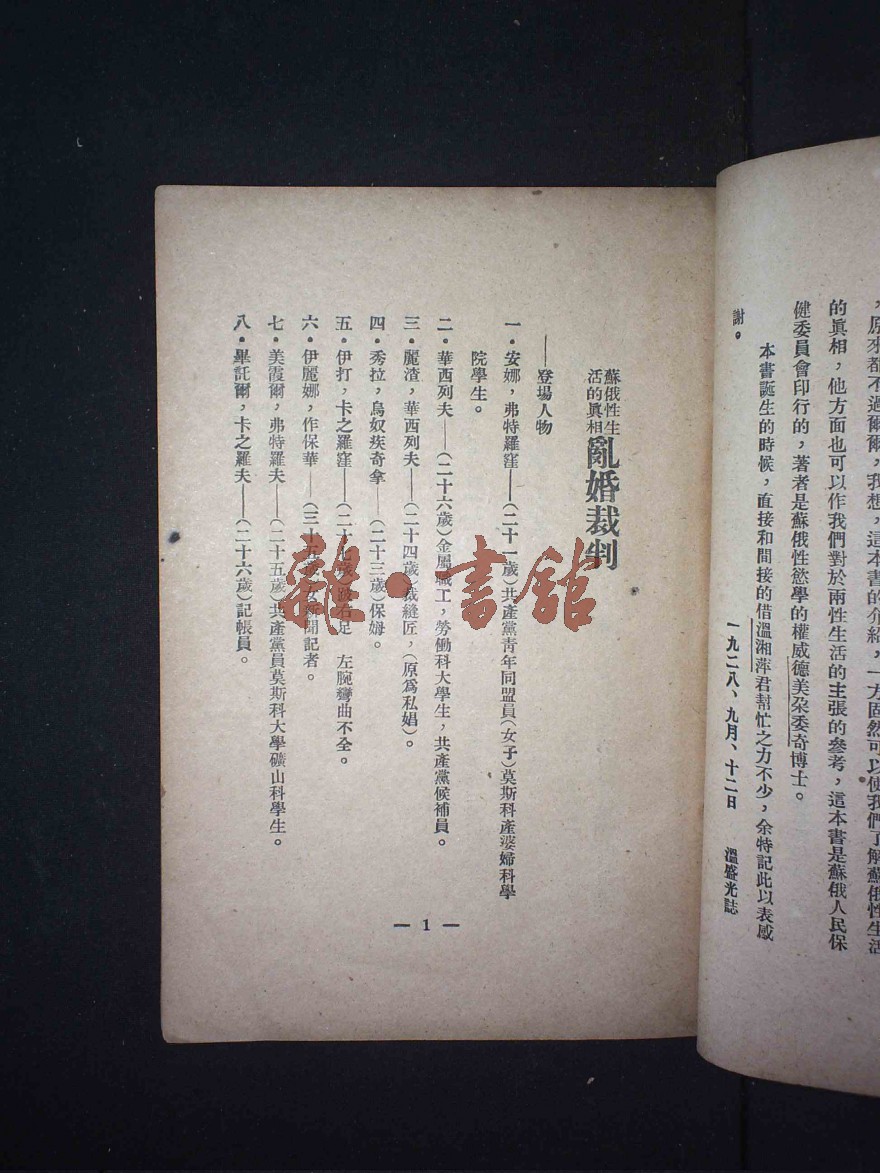 ，原來都不過爾爾，我想，這本書的介紹，一方固然可以使我們了解蘇俄性生活
的眞相，他方面也可以作我們對於兩性生活的主張的參考，這本書是蘇俄人民保
健委員會印行的，著者是蘇俄性慾學的權威德美朶委奇博士。
本書誕生的時候，直接和間接的借溫湘萍君幫忙之力不少，余特記此以表感
謝。
一九二八、九月、十二日　溫盛光誌
蘇俄性生
活的眞相
亂婚裁判
——登場人物
一・安娜，弗特羅窪——（二十一歲）共產黨靑年同盟員（女子）莫斯科產婆婦科學
院學生。
二・華西列夫——（二十六歲）金屬職工，勞働科大學生，共產黨候補員。
三・麗渣，華西列夫——（二十四歲）裁縫匠，（原爲私娼）。
四・秀拉，烏奴疾奇拿——（二十三歲）保姆。
五・伊打，卡之羅窪——（二十七歲）跛右足　左腕彎曲不全。
六・伊麗娜，作保華——（三十五歲）女新聞記者。
七・美霞爾，弗特羅夫——（二十五歲）共產黨員莫斯科大學礦山科學生。
八・畢託爾，卡之羅夫——（二十六歲）記帳員。
— 1 —
雜・書館